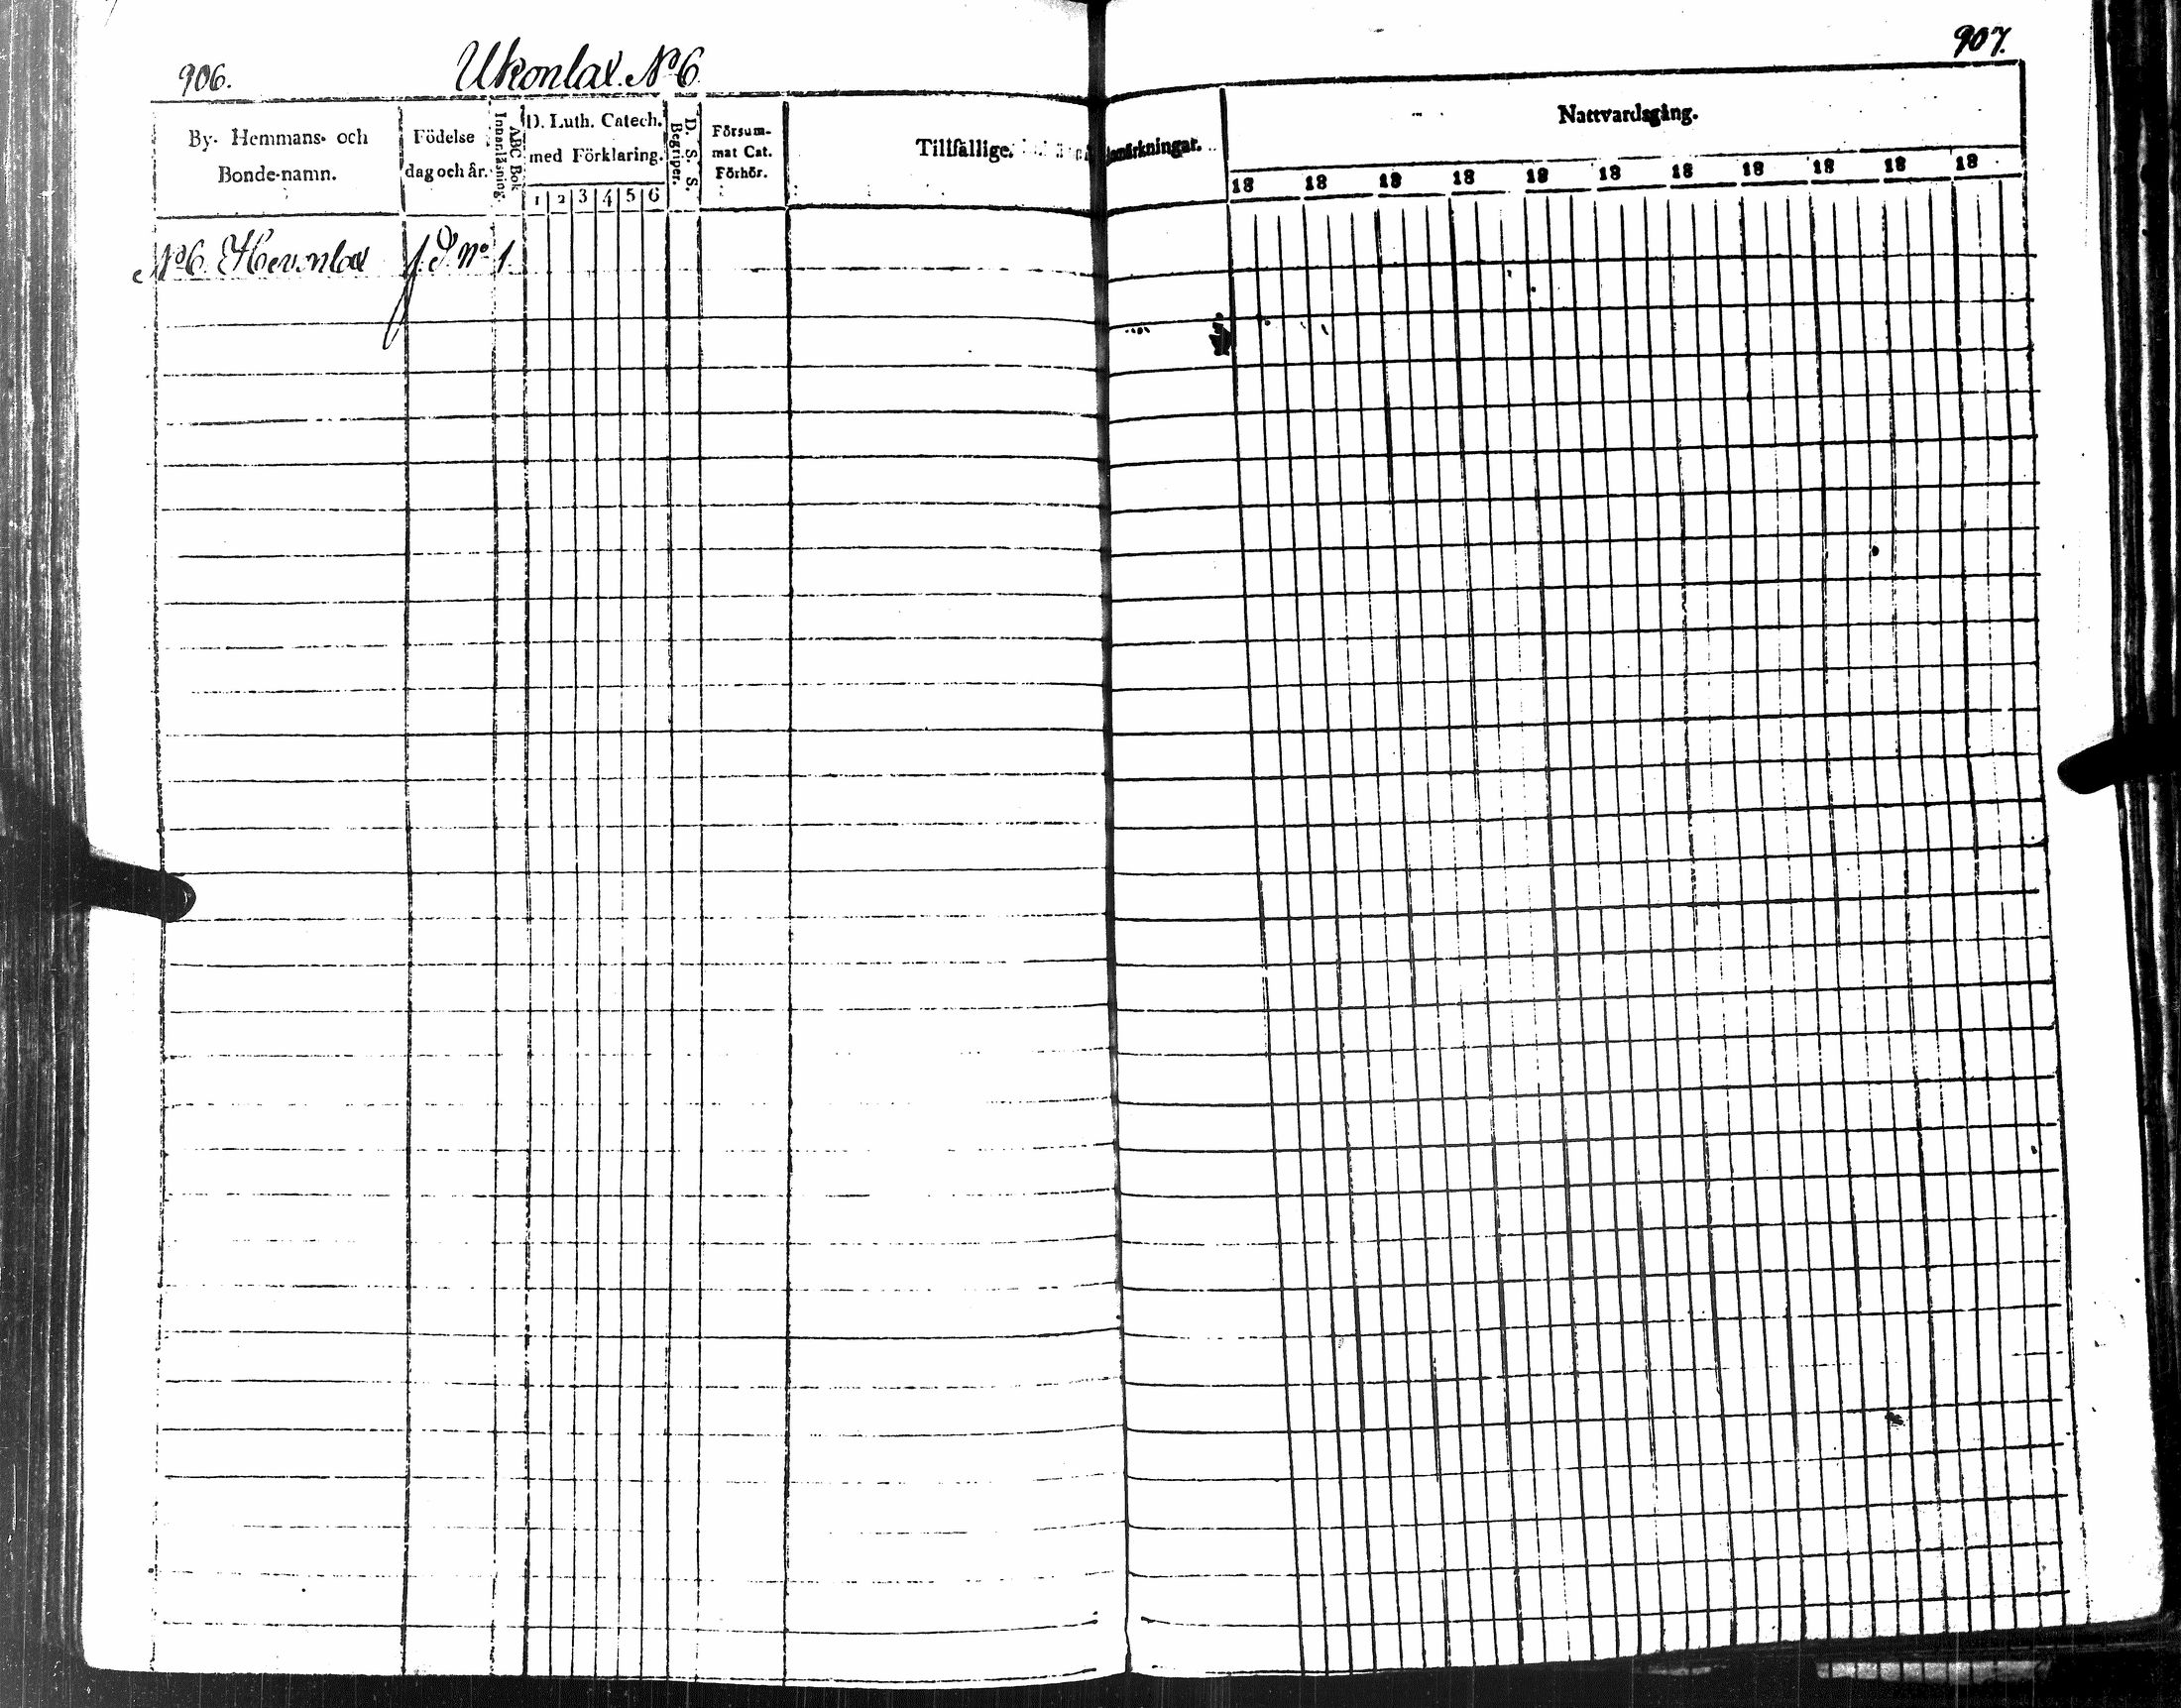 906.
Ukonlax. No 6
907.
By- Hemmans- och
Bonde-namn.
Födelse
dag och år.
ABC Bok
Innanläsning.
D. Luth. Catech.
med Förklaring.
1 2 3 4 5 6
D. S. S.
Begriper.
Försum-
mat Cat.
Förhör.
Tillfällige Anmärkningar.
Nattvardsgång.
18 18 18 18 18 18 18 18 18 18 18
No 6. Hevonlax No 1.